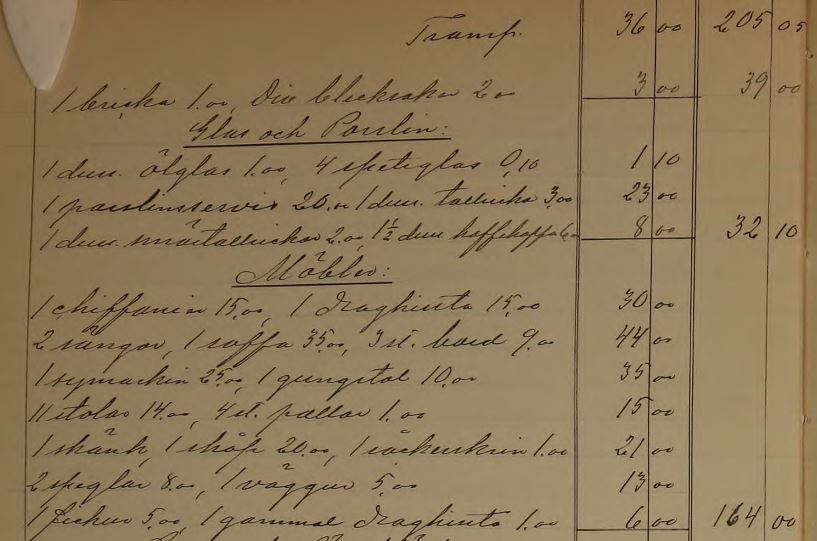 Transp. 36 00 205 05
1 bricka 1.00, Div. blecksaker 2.00 3 00 39 00
Glas och Porslin:
1 duss. ölglas 1.00, 4 spetsglas 0,10 1 10
1 porslinsservis 20.00 1 duss. tallrickar 3.00 23 00
1 duss. småtallrickar 2.00, 1 1/2 duss. kaffekoppar 6.00 8 00 32 10
Möbler:
1 chiffonier 15.00, 1 dragkista 15.00 30 00
2 sängar, 1 soffa 35.00, 3 st. bord 9.00 44 00
1 symaskin 25.00, 1 gungstol 10.00 35 00
11 stolar 14.00, 4 st. pallar 1.00 15 00
1 skänk, 1 skåp 20.00, 1 sockerskrin 1.00 21 00
2 speglar 8.00, 1 väggur 5.00 13 00
5.00, 1 gammal dragkista 1.00 6 00 164 00